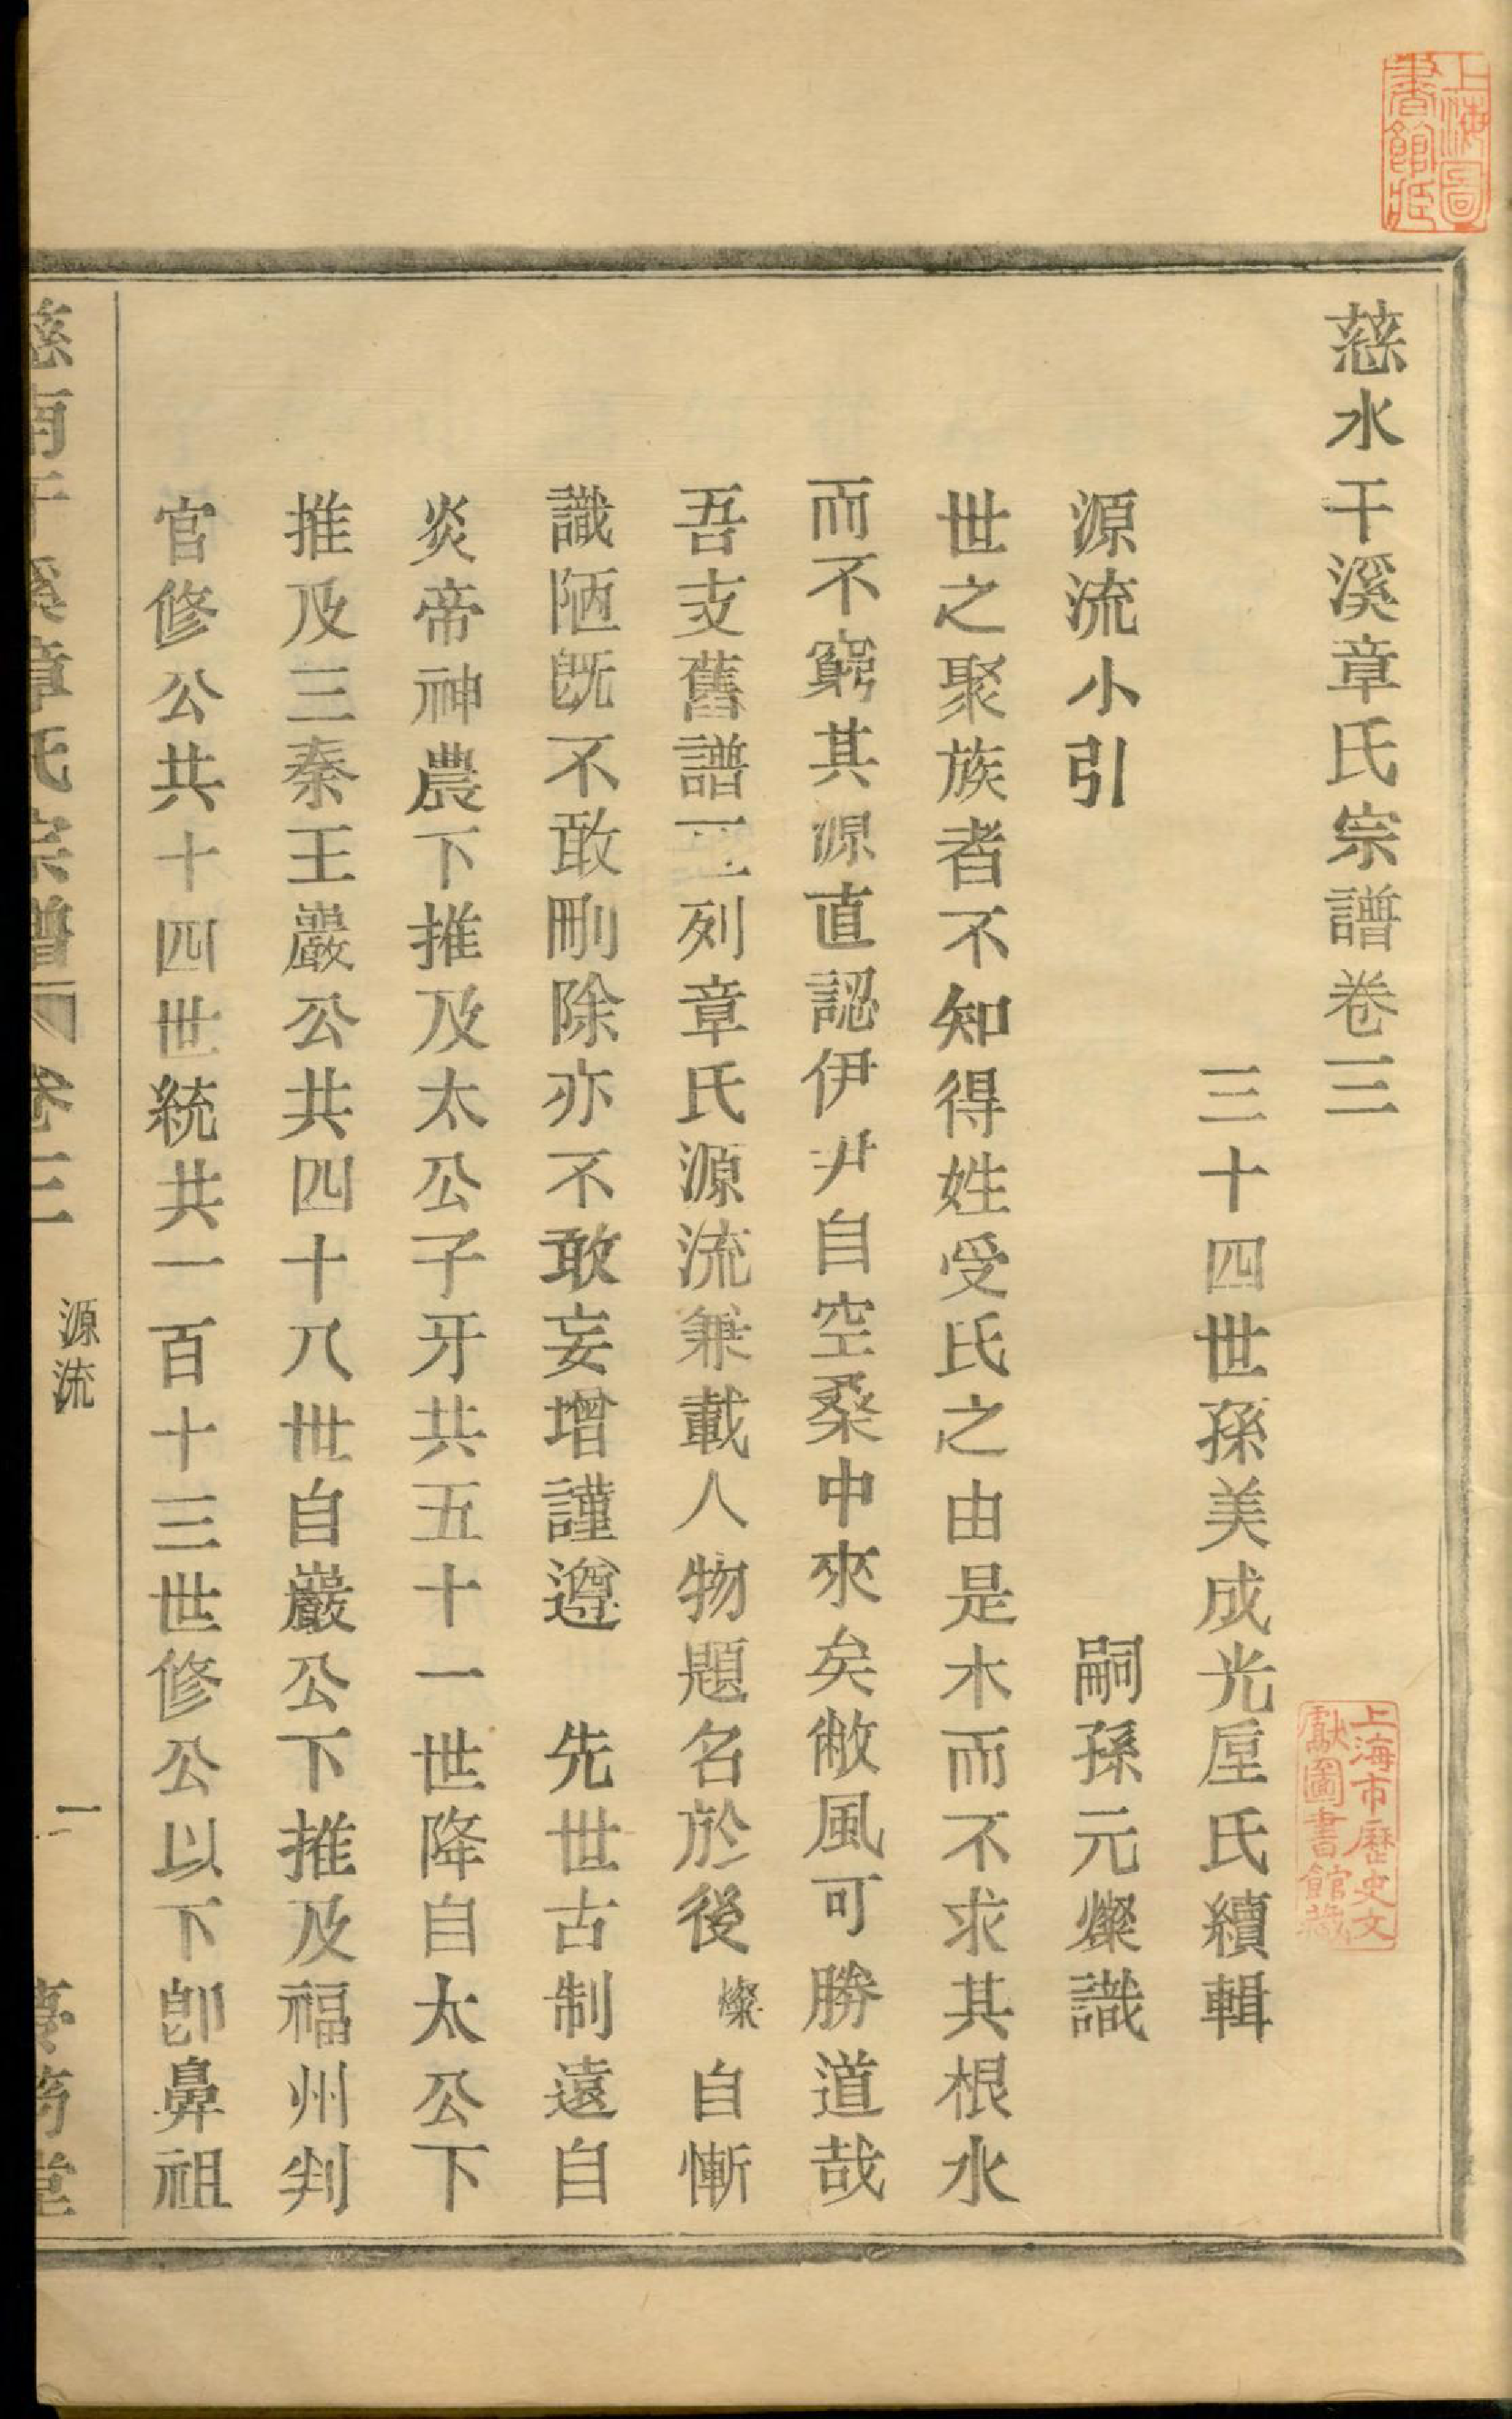 慈水干溪章氏宗譜卷三
三十四世孫美成光垕氏續輯
源流小引
嗣孫元燦識
世之聚族者不知得姓受氏之由是木而不求其根水
而不窮其源直認伊尹自空桑中來矣敝風可勝道哉
吾支舊譜 列章氏源流兼載人物題名於後燦自慚
識陋旣不敢刪除亦不敢妄增謹遵 先世古制遠自
炎帝神農下推及太公子牙共五十一世降自太公下
推及三秦王巖公共四十八世自巖公下推及福州判
官修公共十四世統共一百十三世修公以下卽鼻祖
慈南干溪章氏宗譜 卷三 源流 一
上海圖書館藏
上海市歷史文獻圖書館藏